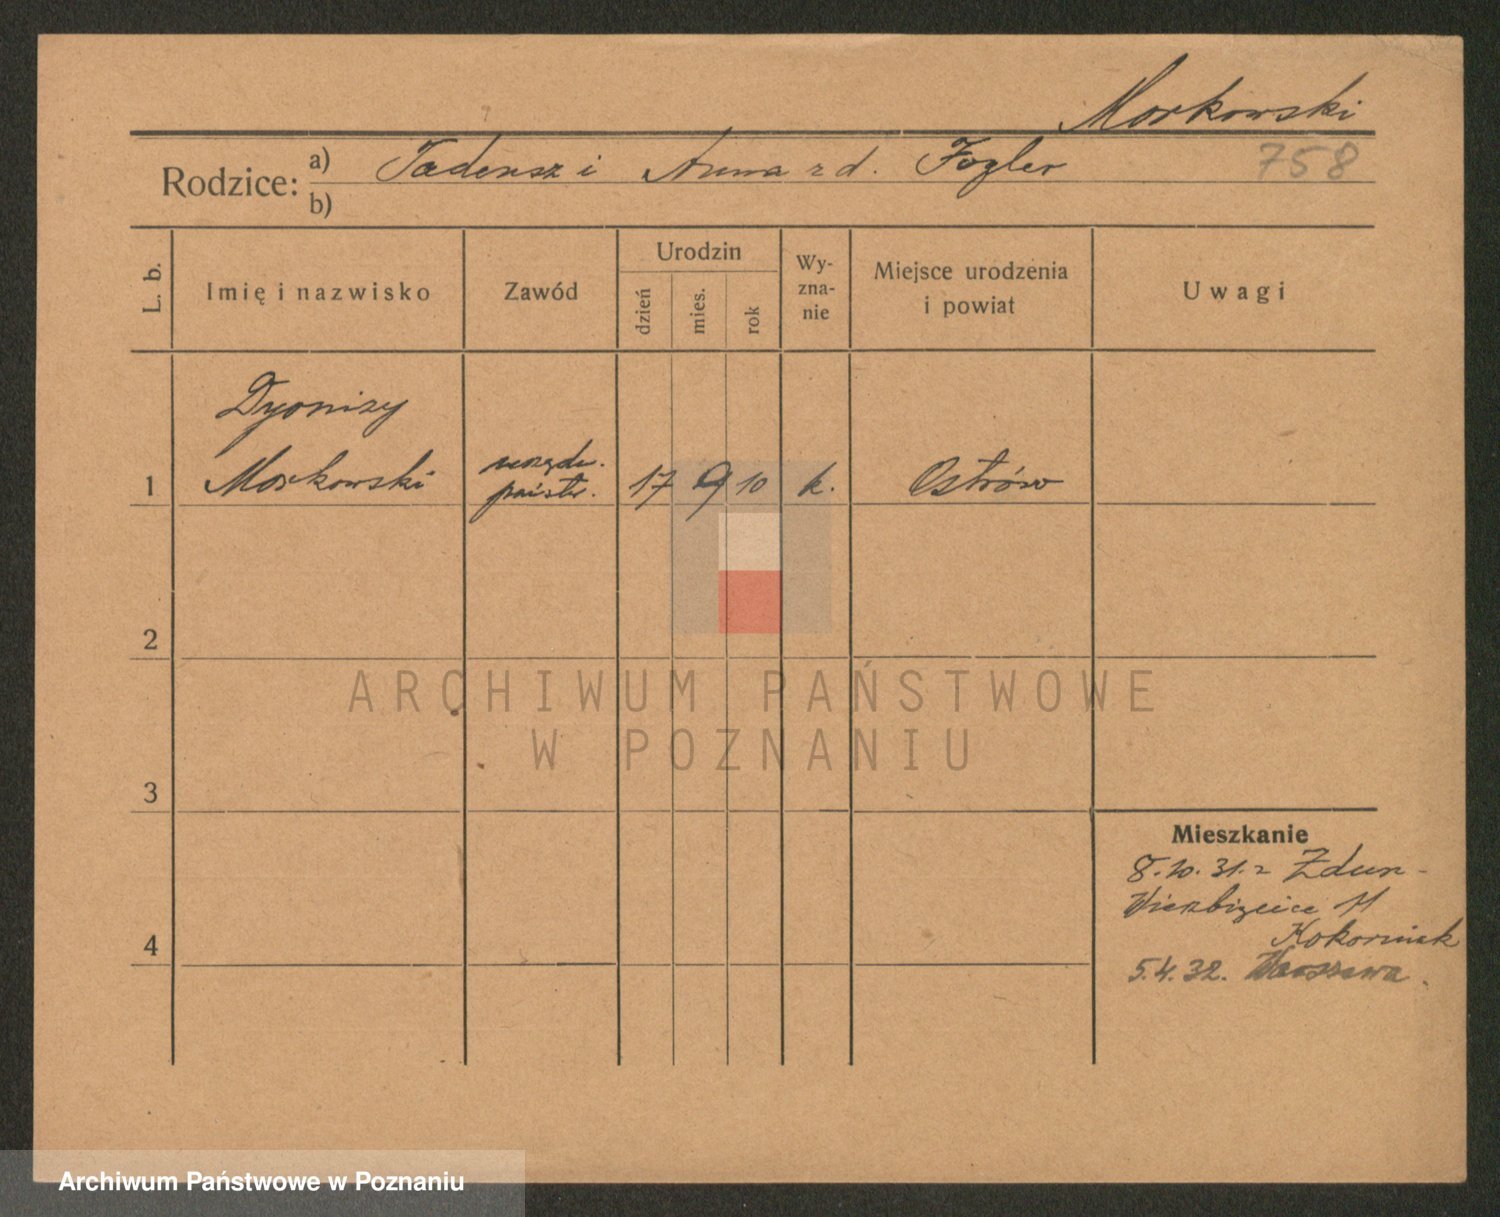 Morkowski
758
Rodzice: a) Tadeusz i Anna z d. Fogler
b)
L. b. Imię i nazwisko Zawód Urodzin dzień mies. rok Wy-zna-nie Miejsce urodzenia i powiat Uwagi
Dyonizy
1 Morkowski urzędn. państw. 17 9 10 k. Ostrów
2
ARCHIWUM PAŃSTWOWE
W POZNANIU
3
Mieszkanie
8.10.31. z Zdun-
Wierzbięcice 11
4
5.4.32. Warszawa.
Archiwum Państwowe w Poznaniu